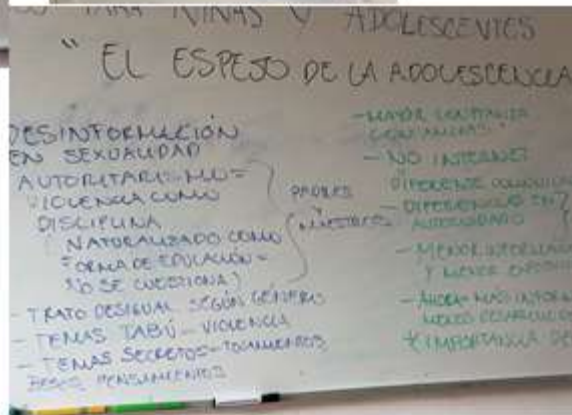 PARA NIÑAS Y ADOLESCENTES
"EL ESPEJO DE LA ADOLESCENCIA
DESINFORMACIÓN
EN SEXUALIDAD
AUTORITARISMO =
VIOLENCIA COMO
DISCIPLINA
(NATURALIZADO COMO
FORMA DE EDUCACIÓN =
NO SE CUESTIONA)
PADRES
Y
MAESTROS
- TRATO DESIGUAL SEGÚN GÉNERO
- TEMAS TABÚ - VIOLENCIA
- TEMAS SECRETOS - TOCAMIENTOS
BESOS PENSAMIENTOS
- MAYOR CONFIANZA
CON
- NO INTERNET
DIFERENTE
- DIFERENCIAS EN
- MENOR
Y MENOR
- AHORA MÁS
MENOS
* IMPORTANCIA DE